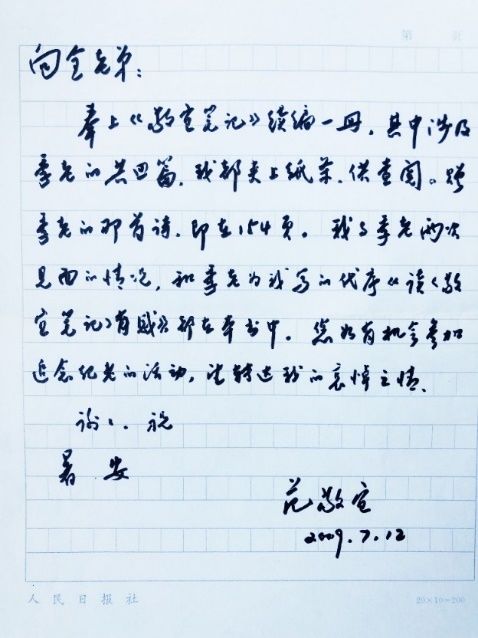 第 页
向全老弟：
奉上《敬宜笔记》续编一册，其中涉及
季老的共四篇，我都夹上纸条，供查阅。赠
季老的那首诗，即在154页。我与季老两次
见面的情况，和季老为我写的代序《读〈敬
宜笔记〉有感》都在本书中。您如有机会参加
追念纪老的活动，望转达我的哀悼之情。
谢々。祝
暑安
范敬宜
2009.7.12
人民日报社 20×10=200